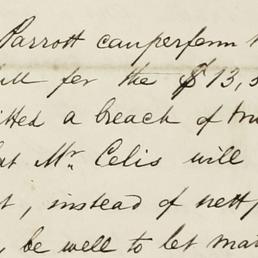 Parrott can perform
for the $13,5
itted a breach of tru
at Mr. Celis will
t, instead of nett
, be well to let mat